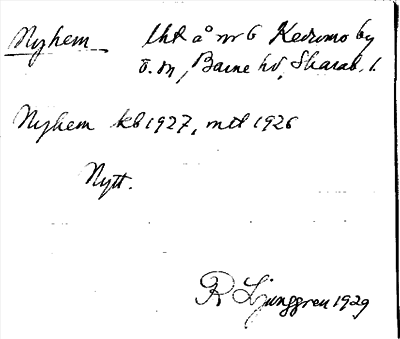 Nyhem lht å nr 6 Kedumo by
ö. sn, Barne hd, Skarab. l.
Nyhem kb 1927, mtl 1926
Nytt.
R Ljunggren 1929